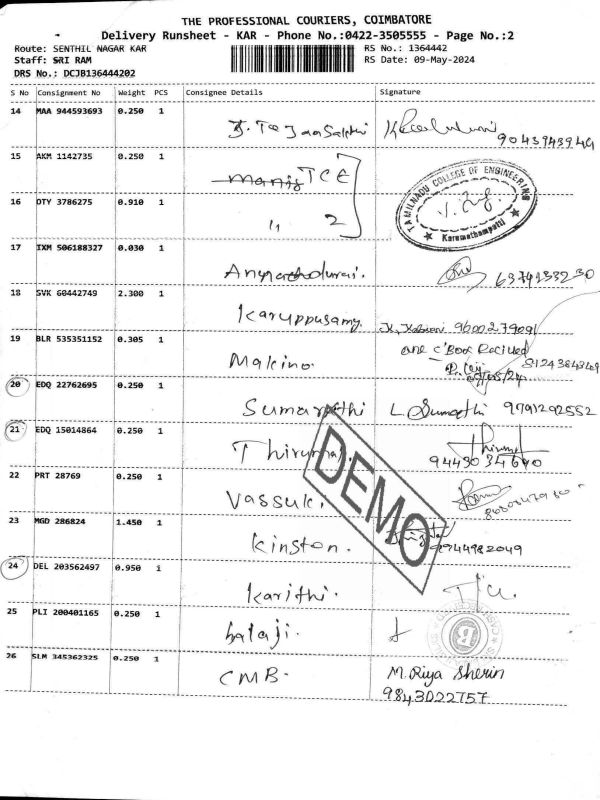 THE PROFESSIONAL COURIERS, COIMBATORE
Delivery Runsheet - KAR - Phone No.:0422-3505555 - Page No.:2
Route: SENTHIL NAGAR KAR
RS No.: 1364442
Staff: SRI RAM
RS Date: 09-May-2024
DRS No.: DCJB136444202
S No Consignment No Weight PCS Consignee Details Signature
14 MAA 944593693 0.250 1
15 AKM 1142735 0.250 1
TCE
16 OTY 3786275 0.910 1
" 2
TAMILNADU COLLEGE OF ENGINEERING
Karumathampatti
17 IXM 506188327 0.030 1
6374933230
18 SVK 60442749 2.300 1
Karuppusamy
9600279091
19 BLR 535351152 0.305 1
Makino.
one Box Recived
20 EDQ 22762695 0.250 1
Sumathi L. Sumathi 9791292552
21 EDQ 15014864 0.250 1
9443034640
22 PRT 28769 0.250 1
Vassuki.
23 MGD 286824 1.450 1
Kinston. 9944982049
24 DEL 203562497 0.950 1
Karithi.
25 PLI 200401165 0.250 1
balaji.
26 SLM 345362325 0.250 1
CMB. M. Riya Sherin
9843022757
DEMO